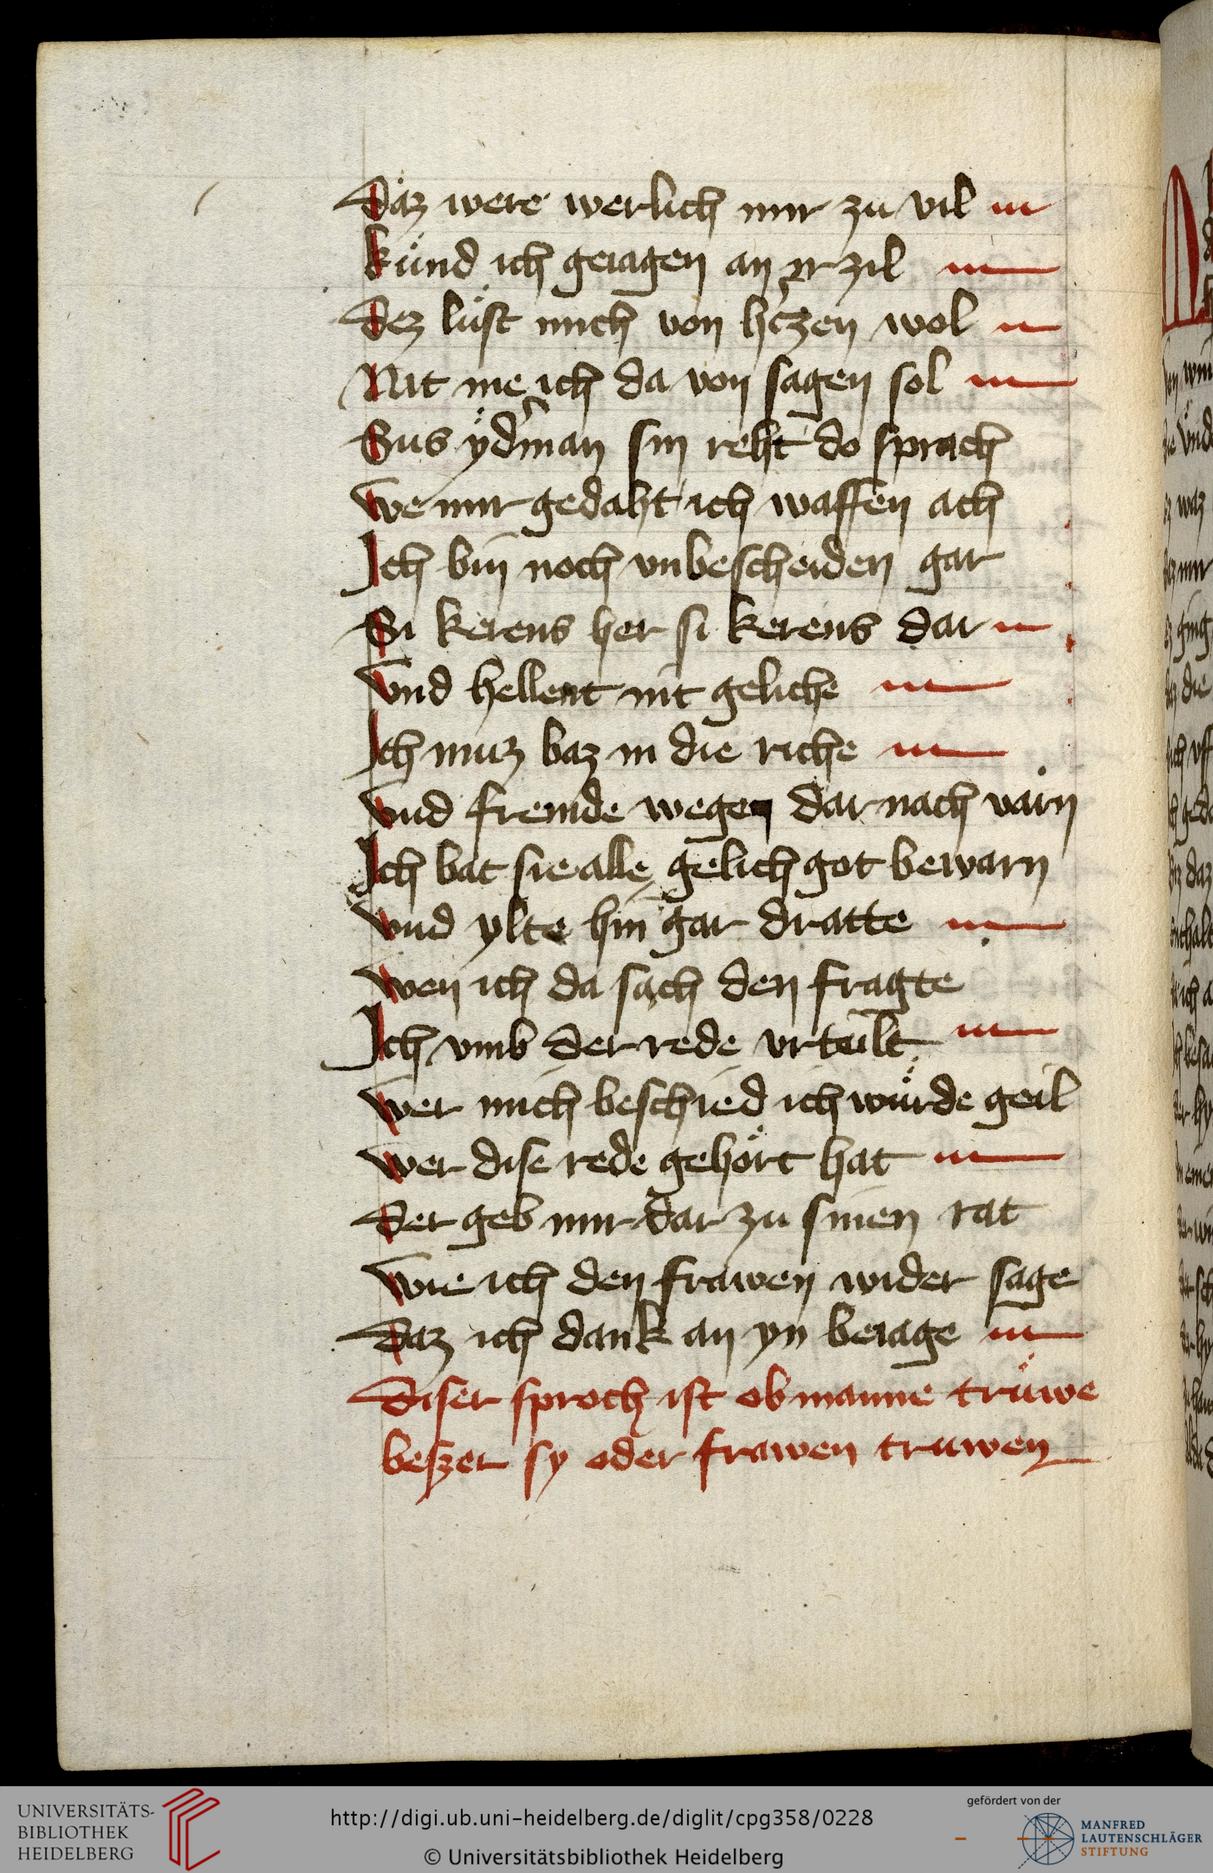 Daz were werlich mir zu vil
kuͤnd ich geiagen an ir zil
Dez luͤst mich von hc̃zen wol
Nit me ich da von sagen sol
Sus ÿdm̃an sin reht do sprach
we mir gedaht ich waffen ach
Ich bin noch vnbescheiden gar
Si kerens her si kerens dar
vnd hellent nit geliche
Ich muz baz in die riche
vnd fremde wegen dar nach varn
Ich bat sie alle gelich got bewarn
vnd ylte hin gar dratte
wen ich da sach den fragte
Ich vmb der rede vrteilt
wer mich beschied ich wuͤrde geil
wer dise rede gehoͤrt hat
der geb mir dar zu sinen rat
wie ich den frawen wider sage
Daz ich dank an yn beiage
Diser sproch ist ob manne truͤwe
beszer sy oder frawen truwen
UNIVERSITÄTS-
BIBLIOTHEK
HEIDELBERG
http://digi.ub.uni-heidelberg.de/diglit/cpg358/0228
© Universitätsbibliothek Heidelberg
gefördert von der
MANFRED
LAUTENSCHLÄGER
STIFTUNG